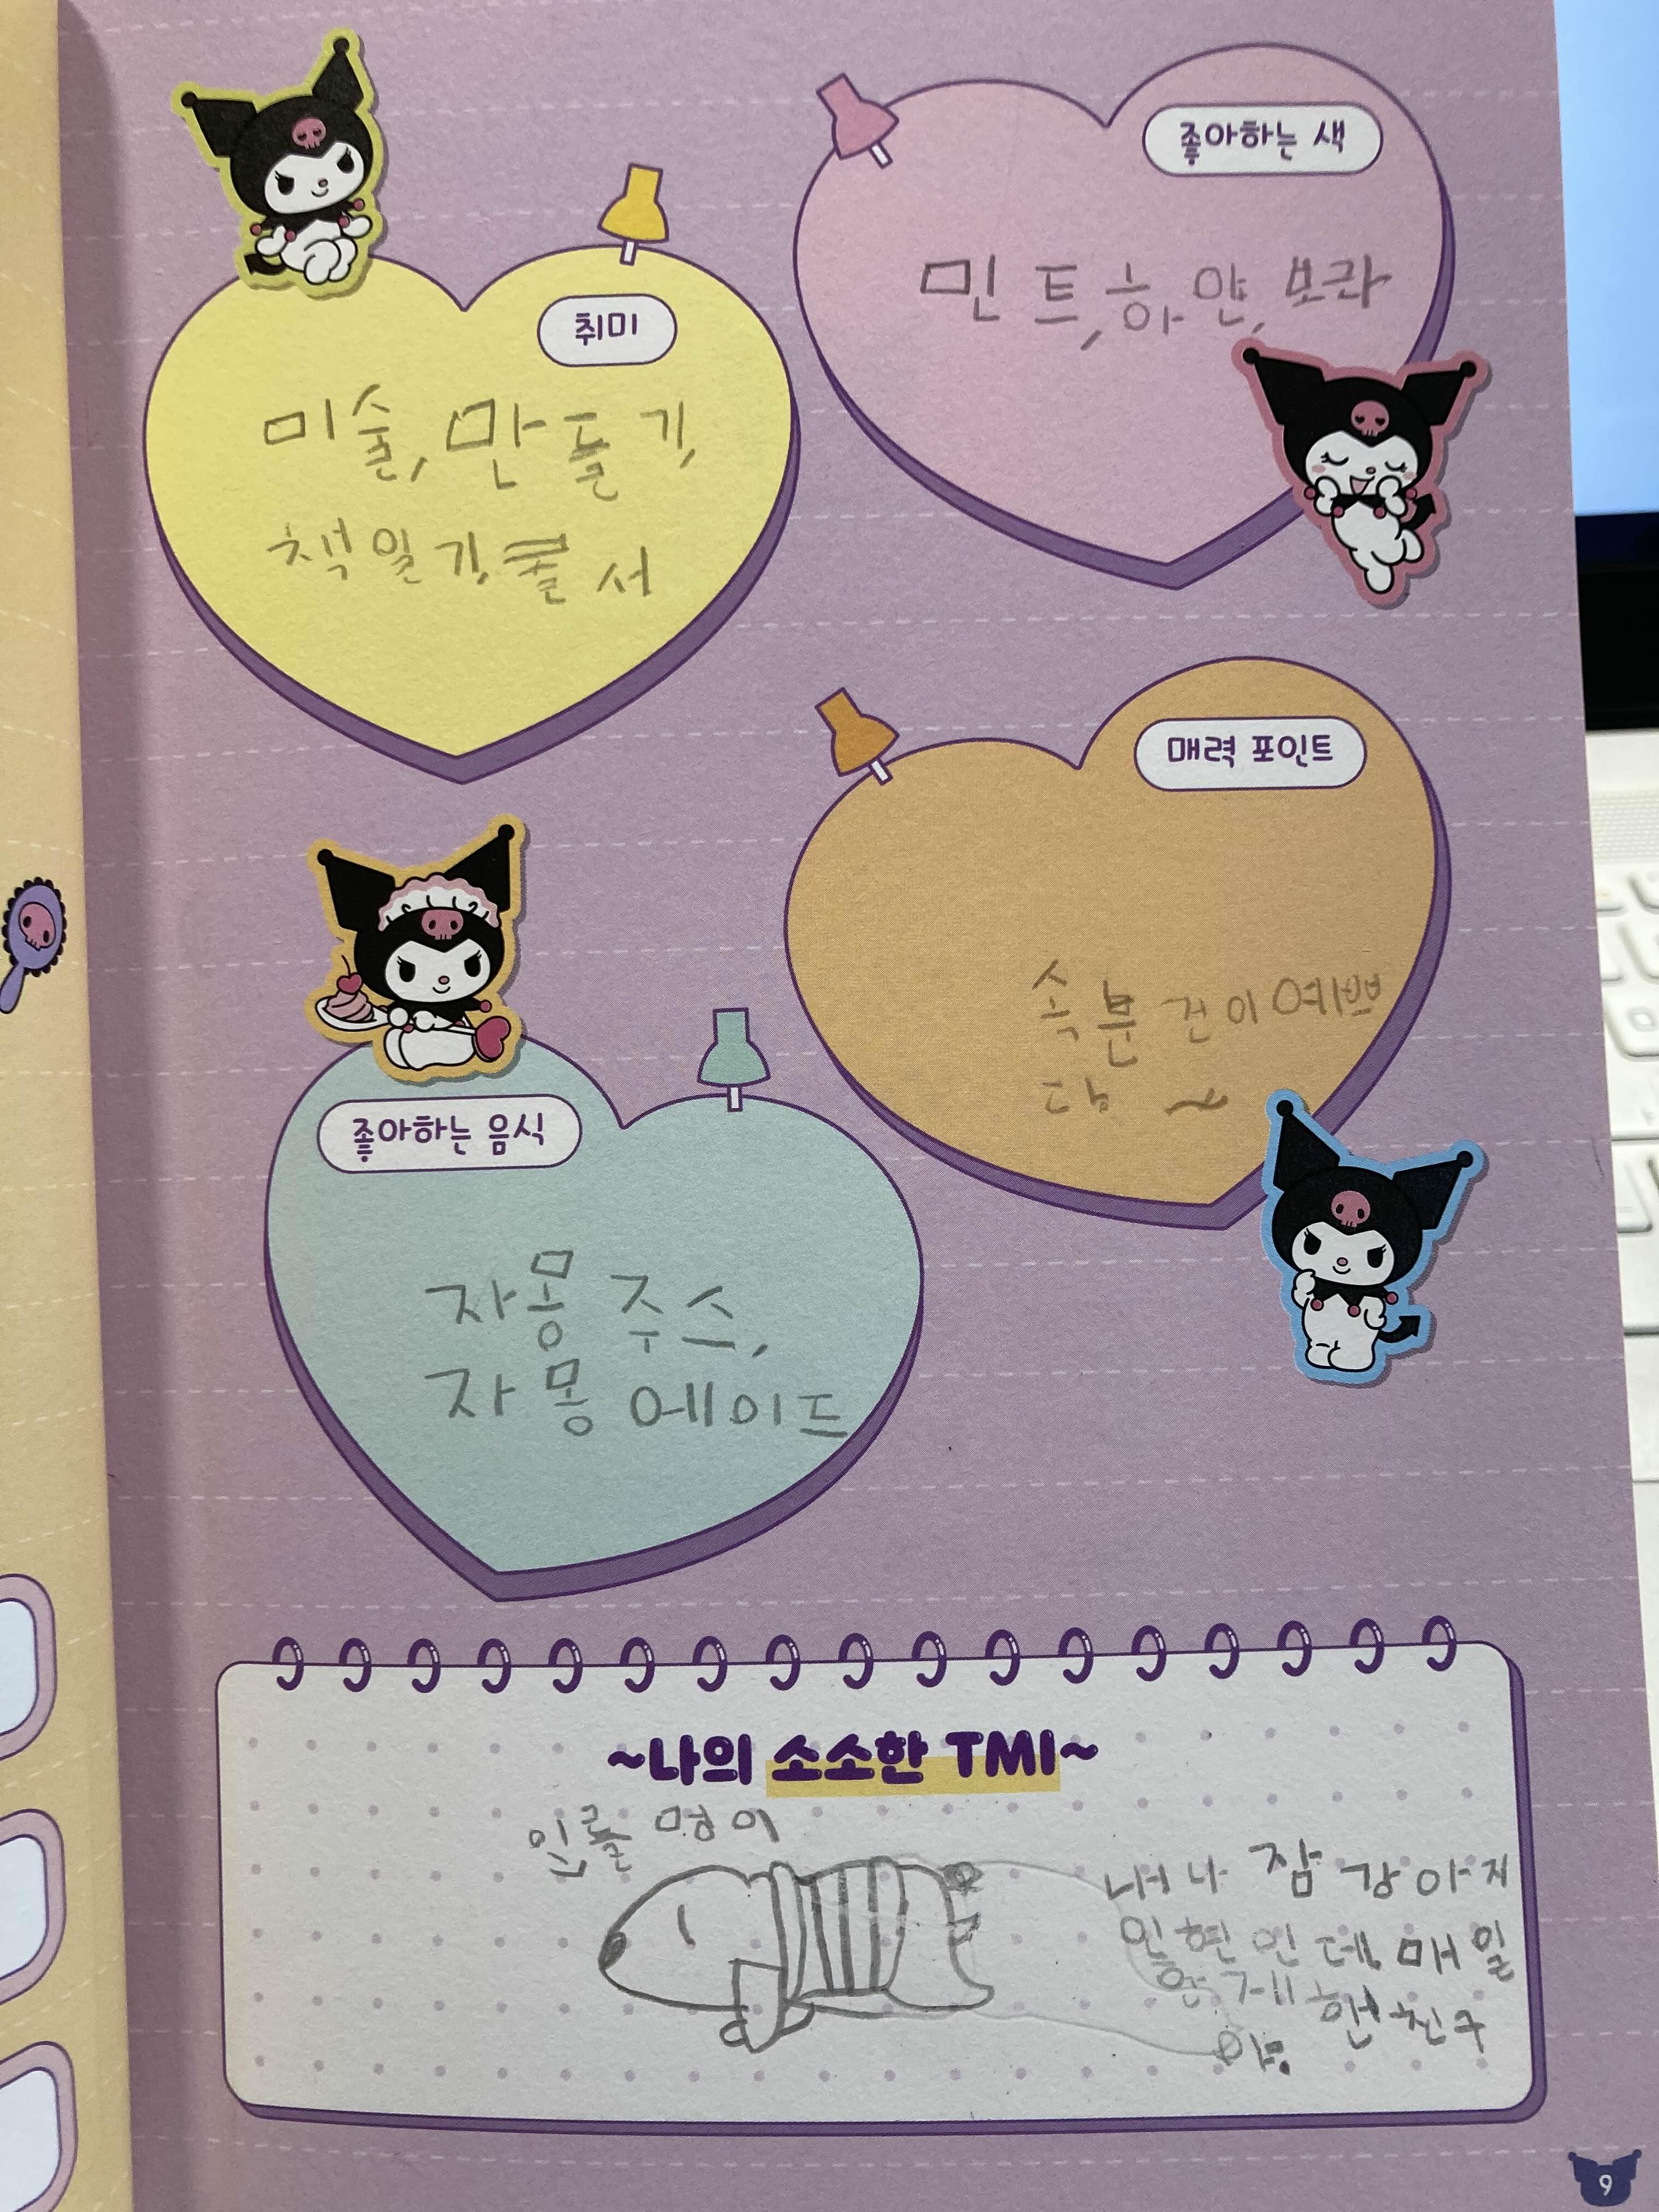 취미
미술, 만들기,
책읽기, 쿨서
좋아하는 색
민트, 하얀, 보라
매력 포인트
속 분 건이 예쁘
다 ~
좋아하는 음식
자몽 주스,
자몽 에이드
~나의 소소한 TMI~
멍이
내 나 잠 강아지
인형인데 매일
함께 한 친구
야.
9